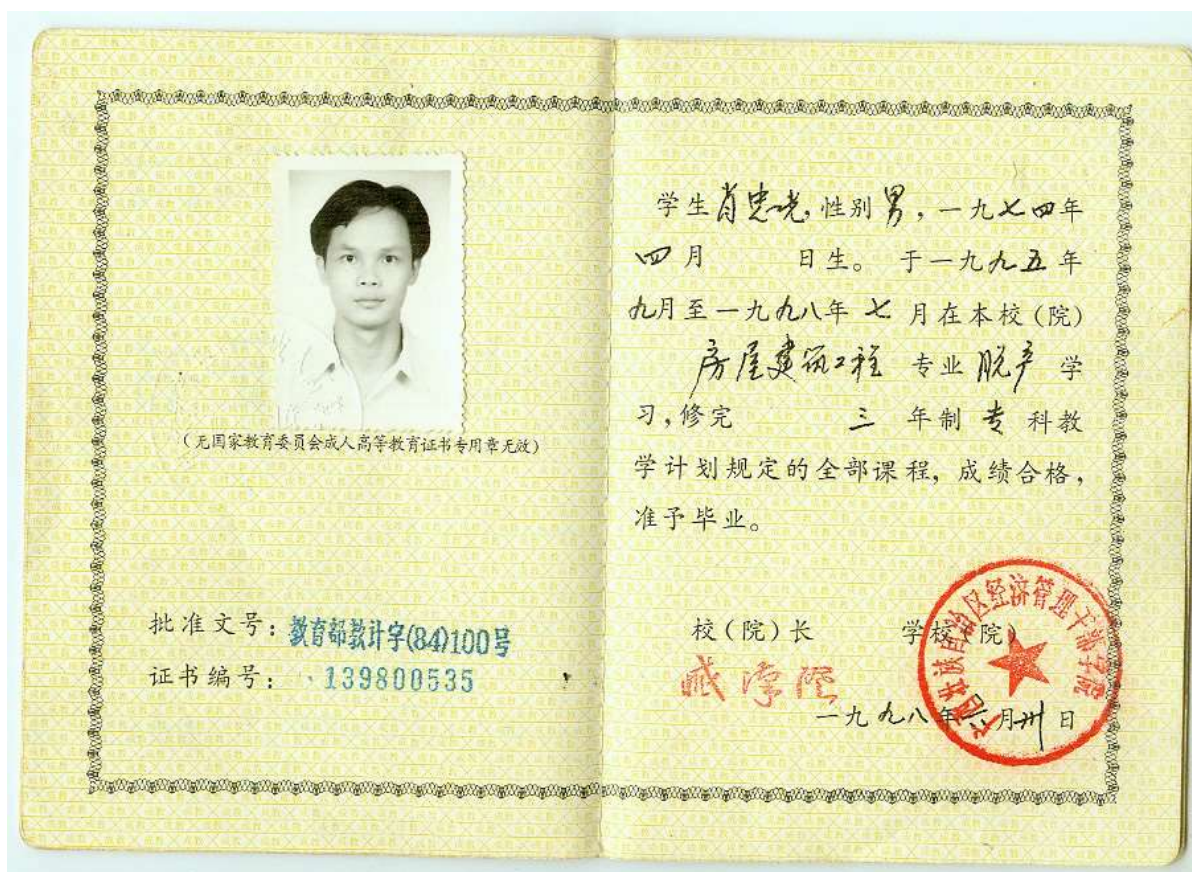 (无国家教育委员会成人高等教育证书专用章无效)
批准文号：教育部教计字(84)100号
证书编号：139800535
学生肖忠光,性别男,一九七四年
四月 日生。于一九九五年
九月至一九九八年七月在本校(院)
房屋建筑工程 专业 脱产 学
习,修完 三 年制 专 科教
学计划规定的全部课程,成绩合格,
准予毕业。
校(院)长 学校(院)
一九九八年 月卅日
广西壮族自治区经济管理干部学院